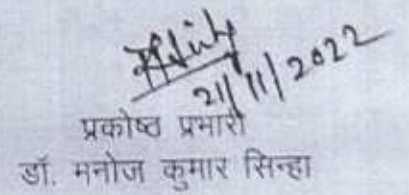 21/11/2022
प्रकोष्ठ प्रभारी
डॉ. मनोज कुमार सिन्हा